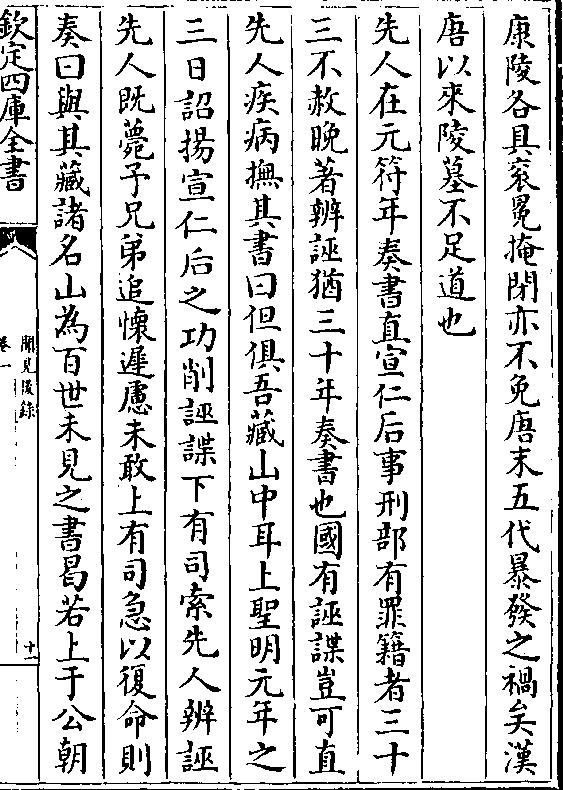 康陵各具衮冕掩閉亦不免唐末五代暴發之禍矣漢
唐以來陵墓不足道也
先人在元符年奏書直宣仁后事刑部有罪籍者三十
三不赦晚著辨誣猶三十年奏書也國有誣謀豈可直
先人疾病撫其書曰但俱吾藏山中耳上聖明元年之
三日詔揚宣仁后之功削誣謀下有司索先人辨誣
先人既薨予兄弟追懐遲慮未敢上有司急以復命則
奏曰與其藏諸名山為百世未見之書曷若上于公朝
欽定四庫全書
聞見後錄
卷一
十一